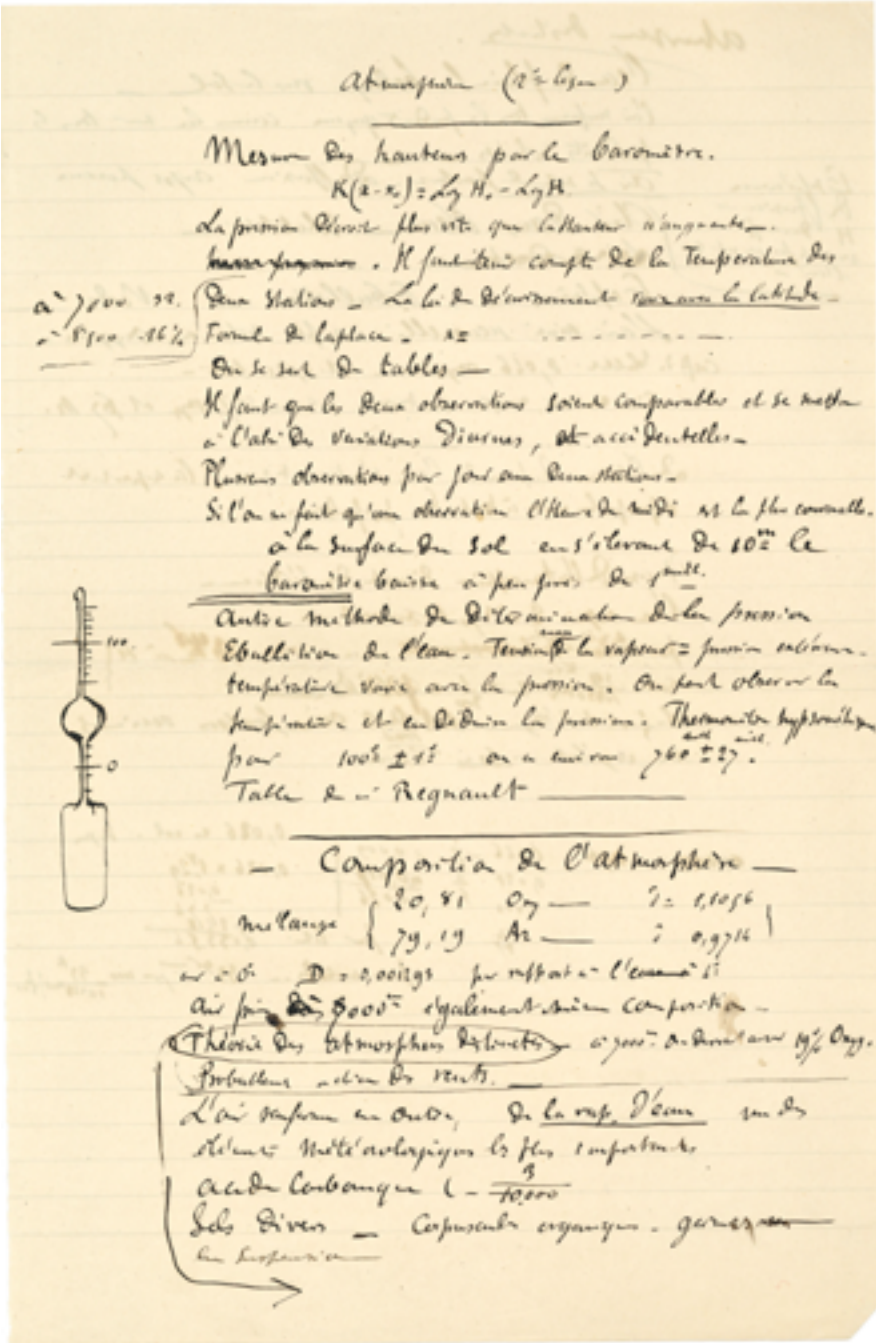 Atmosphère (2e leçon)
Mesure des hauteurs par le baromètre.
K(z-z₀) = Log H₀ - Log H
La pression décroit plus vite que la hauteur n'augmente.
Il faut tenir compte de la Température des
à 7000
deux stations. La loi de décroissement varie avec la latitude.
16%
Formule de Laplace. z=
On se sert de tables
Il faut que les deux observations soient comparables et se mettre
à l'abri des variations diurnes, et accidentelles
Plusieurs observations par jour aux deux stations
Si l'on ne fait qu'une observation l'Heure de midi est la plus convenable.
à la surface du sol en s'élevant de 10m le
baromètre baisse à peu près de 1mill.
Autre méthode de détermination de la pression
100
Ebullition de l'eau. Tension de la vapeur = pression extérieure.
température varie avec la pression. On peut observer la
température et en déduire la pression. Thermomètre hypsométrique
0
pour 100° ± 1° on a environ 760 mill ± 27 mill.
Table de Regnault
Composition de l'atmosphère
mélange
20,81 Oxy 1,1056
79,19 Az 0,9714
D = 0,001293 par rapport à l'eau
air également même composition
Théorie des atmosphères distinctes à 7000m on devrait avoir 19% Oxyg.
action des vents.
L'air renferme en outre, de la vap. d'eau un des
éléments météorologiques les plus importants
acide Carbonique 3/10,000
Sels divers Corpuscules organiques. germes
en suspension